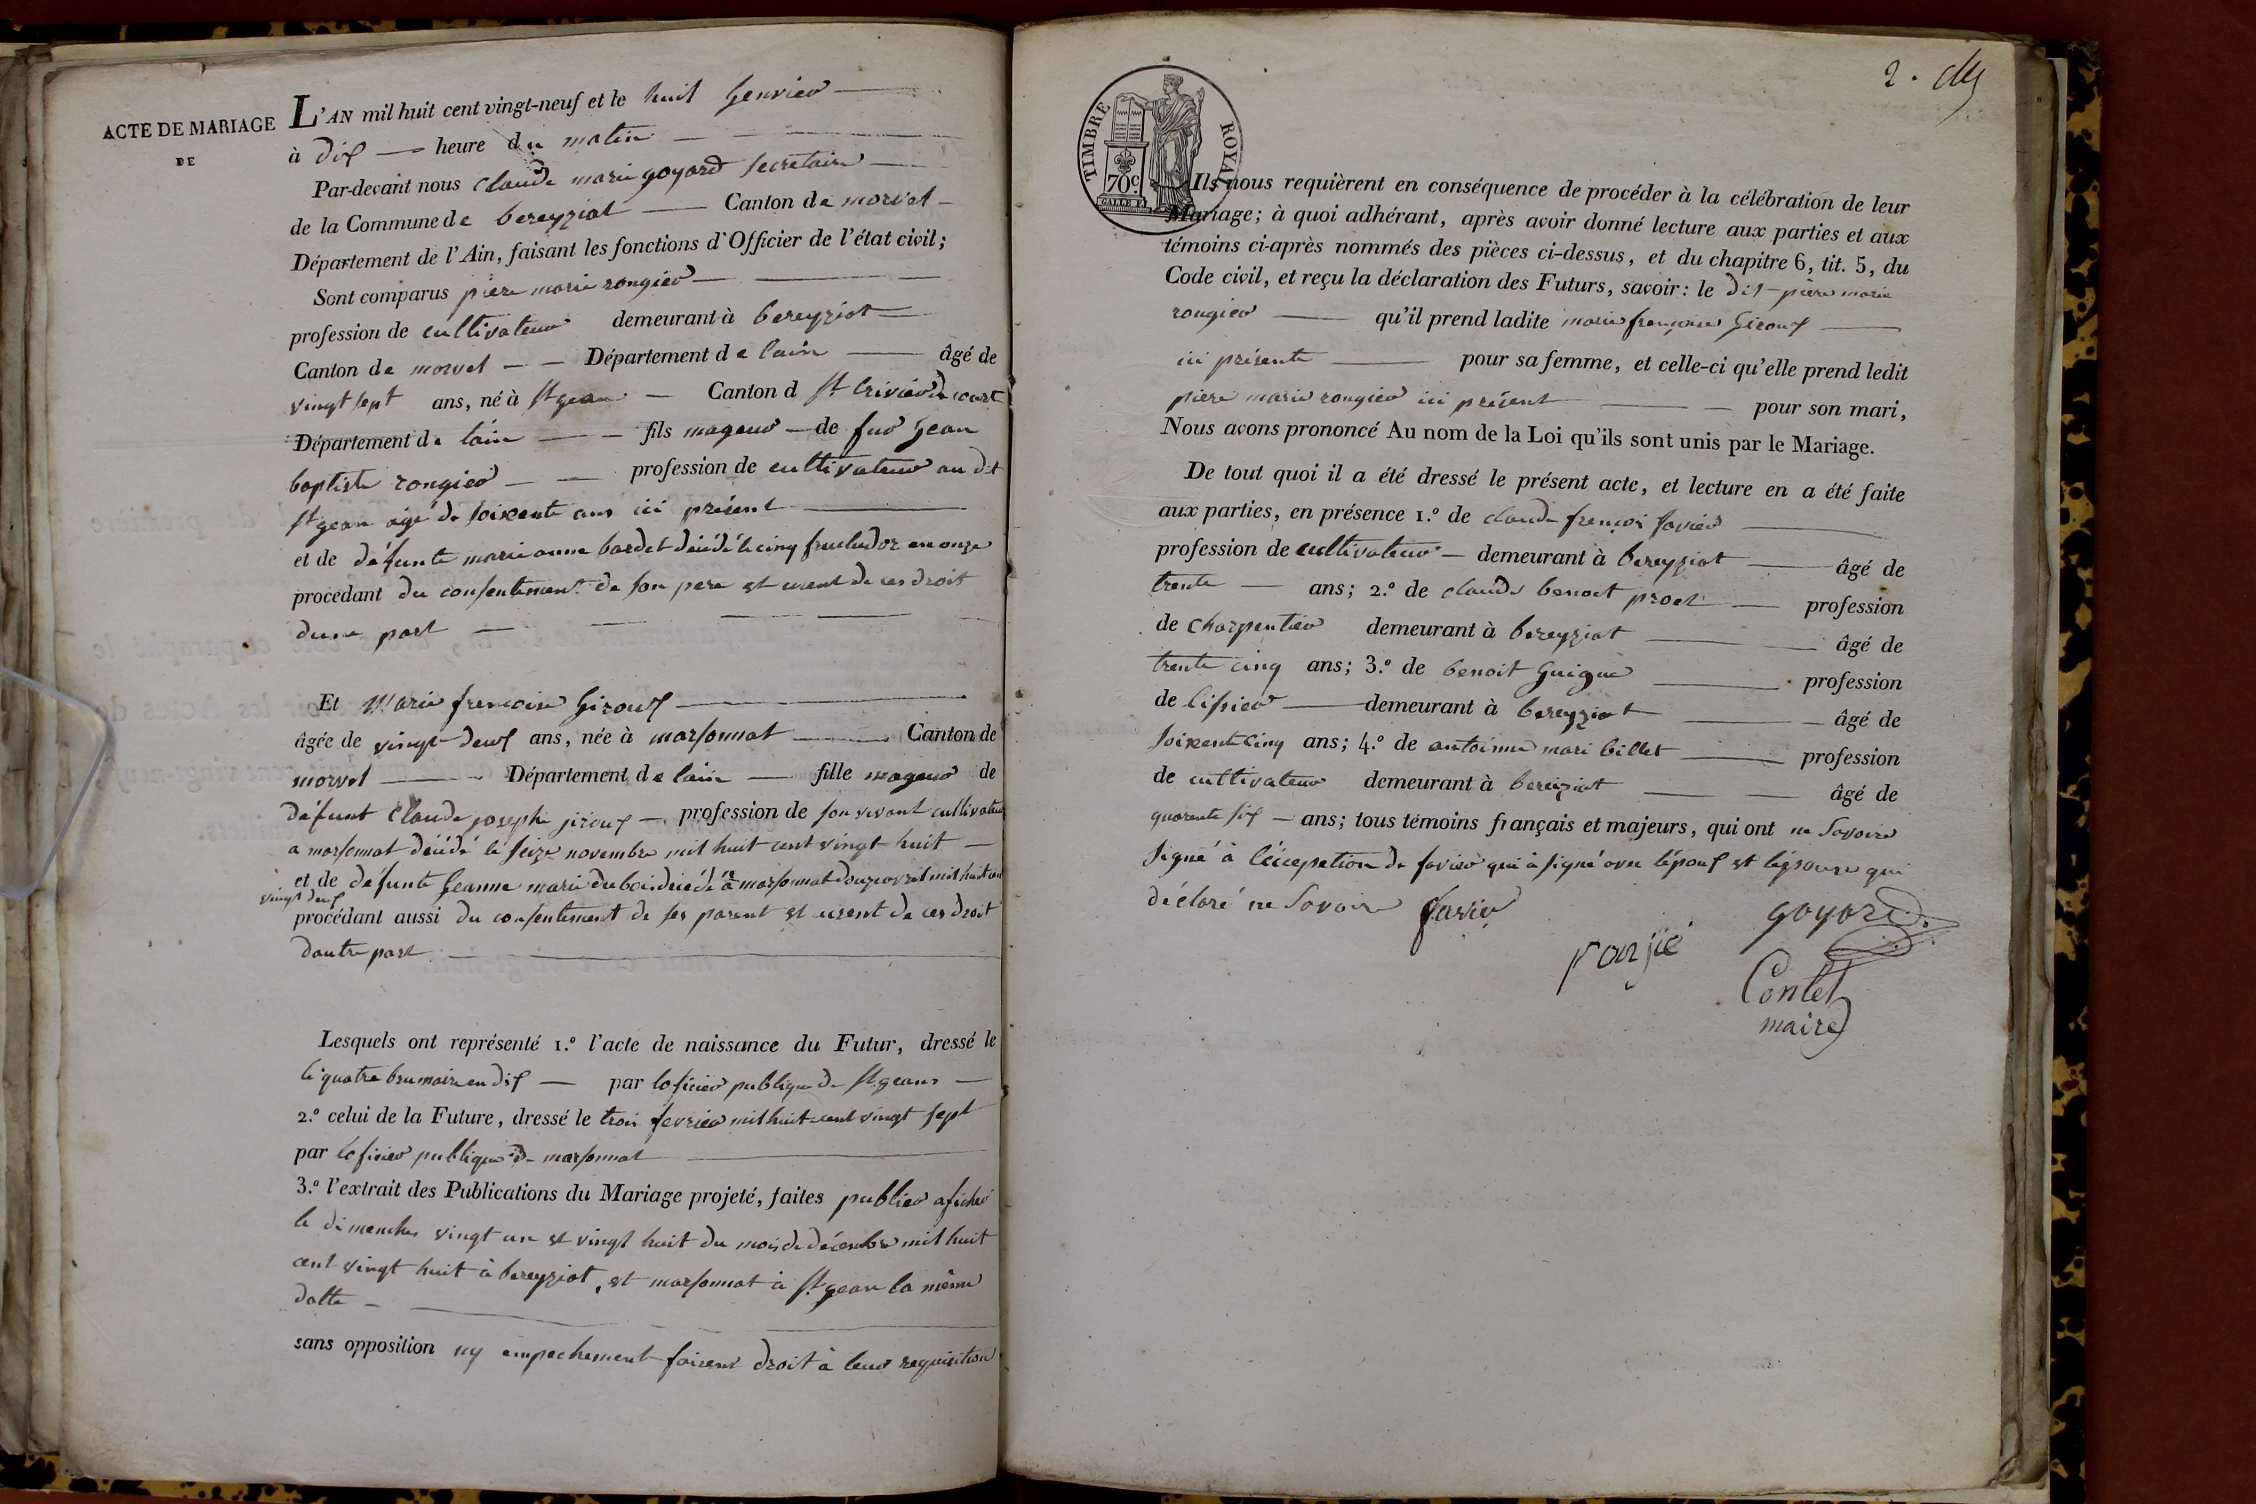 ACTE DE MARIAGE
DE
L'AN mil huit cent vingt-neuf et le huit Genvier
à dix heure du matin
Par-devant nous claude marie goyard secretaire
de la Commune de bereyziat Canton de morvel
Département de l'Ain, faisant les fonctions d'Officier de l'état civil;
Sont comparus piere marie rongier
profession de cultivateur demeurant à bereyziat
Canton de morvel Département de lain âgé de
vingt sept ans, né à St gean Canton d St trivier de court
Département de lain fils mageur de fur Gean
baptiste rongier profession de cultivateur au dit
St gean agé de soixente ans ici présent
et de défunte marie anne bardet décédé le cinq fructudor an onze
procédant du consentement de son pere et usent de ces droit
dune part
Et Marie françoise Giroux
âgée de vingt deux ans, née à marsonnat Canton de
morvel Département de lain fille mageur de
défunt Claude joseph giroux profession de son vivant cultivateur
a marsonnat décédé le seize novembre mil huit cent vingt huit
et de défunte Geanne marie dubois décédé a marsonnat douze avril mil huit cent
vingt deux
procédant aussi du consentement de ses parent et usent de ces droit
dautre part
Lesquels ont représenté 1.º l'acte de naissance du Futur, dressé le
le quatre brumaire an dix par loficier publique de St geans
2.º celui de la Future, dressé le trois fevrier mil huit cent vingt sept
par loficier publique de marsonnat
3.º l'extrait des Publications du Mariage projeté, faites publier afiché
le dimenches vingt un et vingt huit du mois de décembre mil huit
cent vingt huit à bereyziat, et marsonnat à St gean la même
datte
sans opposition ny empechement faisent droit à leur requisition
2.
TIMBRE ROYAL
70 c.
Ils nous requièrent en conséquence de procéder à la célébration de leur
Mariage; à quoi adhérant, après avoir donné lecture aux parties et aux
témoins ci-après nommés des pièces ci-dessus, et du chapitre 6, tit. 5, du
Code civil, et reçu la déclaration des Futurs, savoir: le dit piere marie
rongier qu'il prend ladite marie françoise Giroux
ici présente pour sa femme, et celle-ci qu'elle prend ledit
piere marie rongier ici présent pour son mari,
Nous avons prononcé Au nom de la Loi qu'ils sont unis par le Mariage.
De tout quoi il a été dressé le présent acte, et lecture en a été faite
aux parties, en présence 1.º de claude françoi favier
profession de cultivateur demeurant à bereyziat âgé de
trente ans; 2.º de claude benoit prost profession
de charpentier demeurant à bereyziat âgé de
trente cinq ans; 3.º de benoit Guigue profession
de tissier demeurant à bereyziat âgé de
soixent cinq ans; 4.º de antoinne mari billet profession
de cultivateur demeurant à bereiziat âgé de
quarente six ans; tous témoins français et majeurs, qui ont ne savoire
signé à l'éccepsetion de favier qui à signé avec lépoux et lépouse qui
déclaré ne savoir favier
goyard
ronjié
Contet
maire